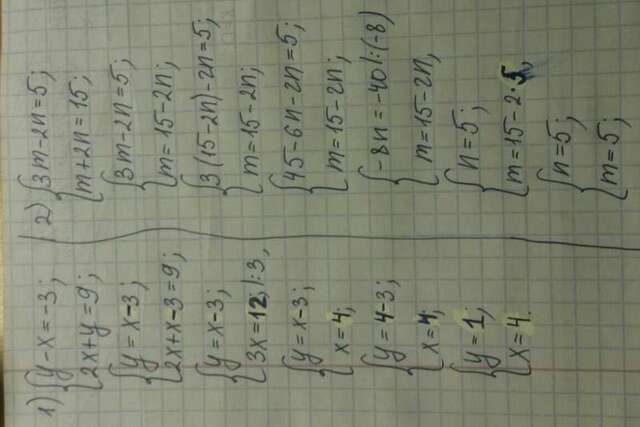 1) { y - x = -3;
2x + y = 9;
{ y = x - 3;
2x + x - 3 = 9;
{ y = x - 3;
3x = 12; |:3,
{ y = x - 3;
x = 4;
{ y = 4 - 3;
x = 4;
{ y = 1;
x = 4.
2) { 3m - 2n = 5;
m + 2n = 15;
{ 3m - 2n = 5;
m = 15 - 2n;
{ 3(15 - 2n) - 2n = 5;
m = 15 - 2n;
{ 45 - 6n - 2n = 5;
m = 15 - 2n;
{ -8n = -40 |:(-8)
m = 15 - 2n,
{ n = 5;
m = 15 - 2·5,
{ n = 5;
m = 5;